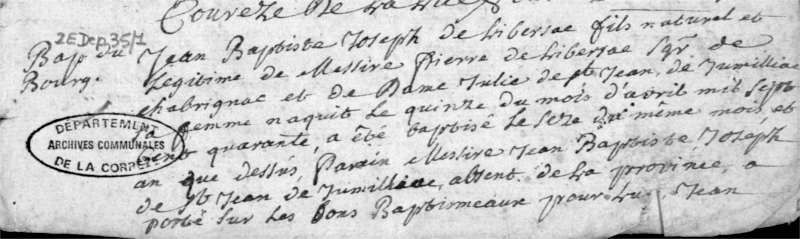 Coureze De La
2EDep35/1
Bap du
Bourg.
Jean Baptiste Joseph de Libersac fils naturel et
Legitime de Messire Pierre de Libersac Sgr. de
chabrignac et de Dame Julie de st Jean, de Jumilliac
sa femme naquit le quinze du mois d'avril mil sept
cent quarante, a été baptisé le seze du même mois et
an que dessus, Parain Messire Jean Baptiste Joseph
de st Jean de Jumilliac, absent de la province, a
porté sur les fons Baptismeaux pour luy Jean
DÉPARTEMENT
ARCHIVES COMMUNALES
DE LA CORRÈZE